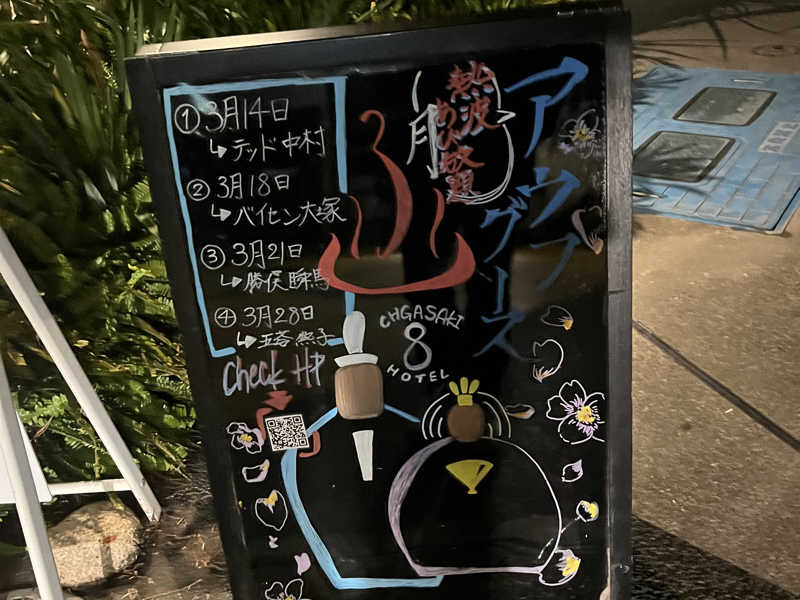 アウフグース
熱波
あび放題
月
① 3月14日
↳テッド中村
② 3月18日
↳バイセン大塚
③ 3月21日
↳勝俣瞬馬
④ 3月28日
↳五塔熱子
Check HP
CHGASAKI
8
HOTEL